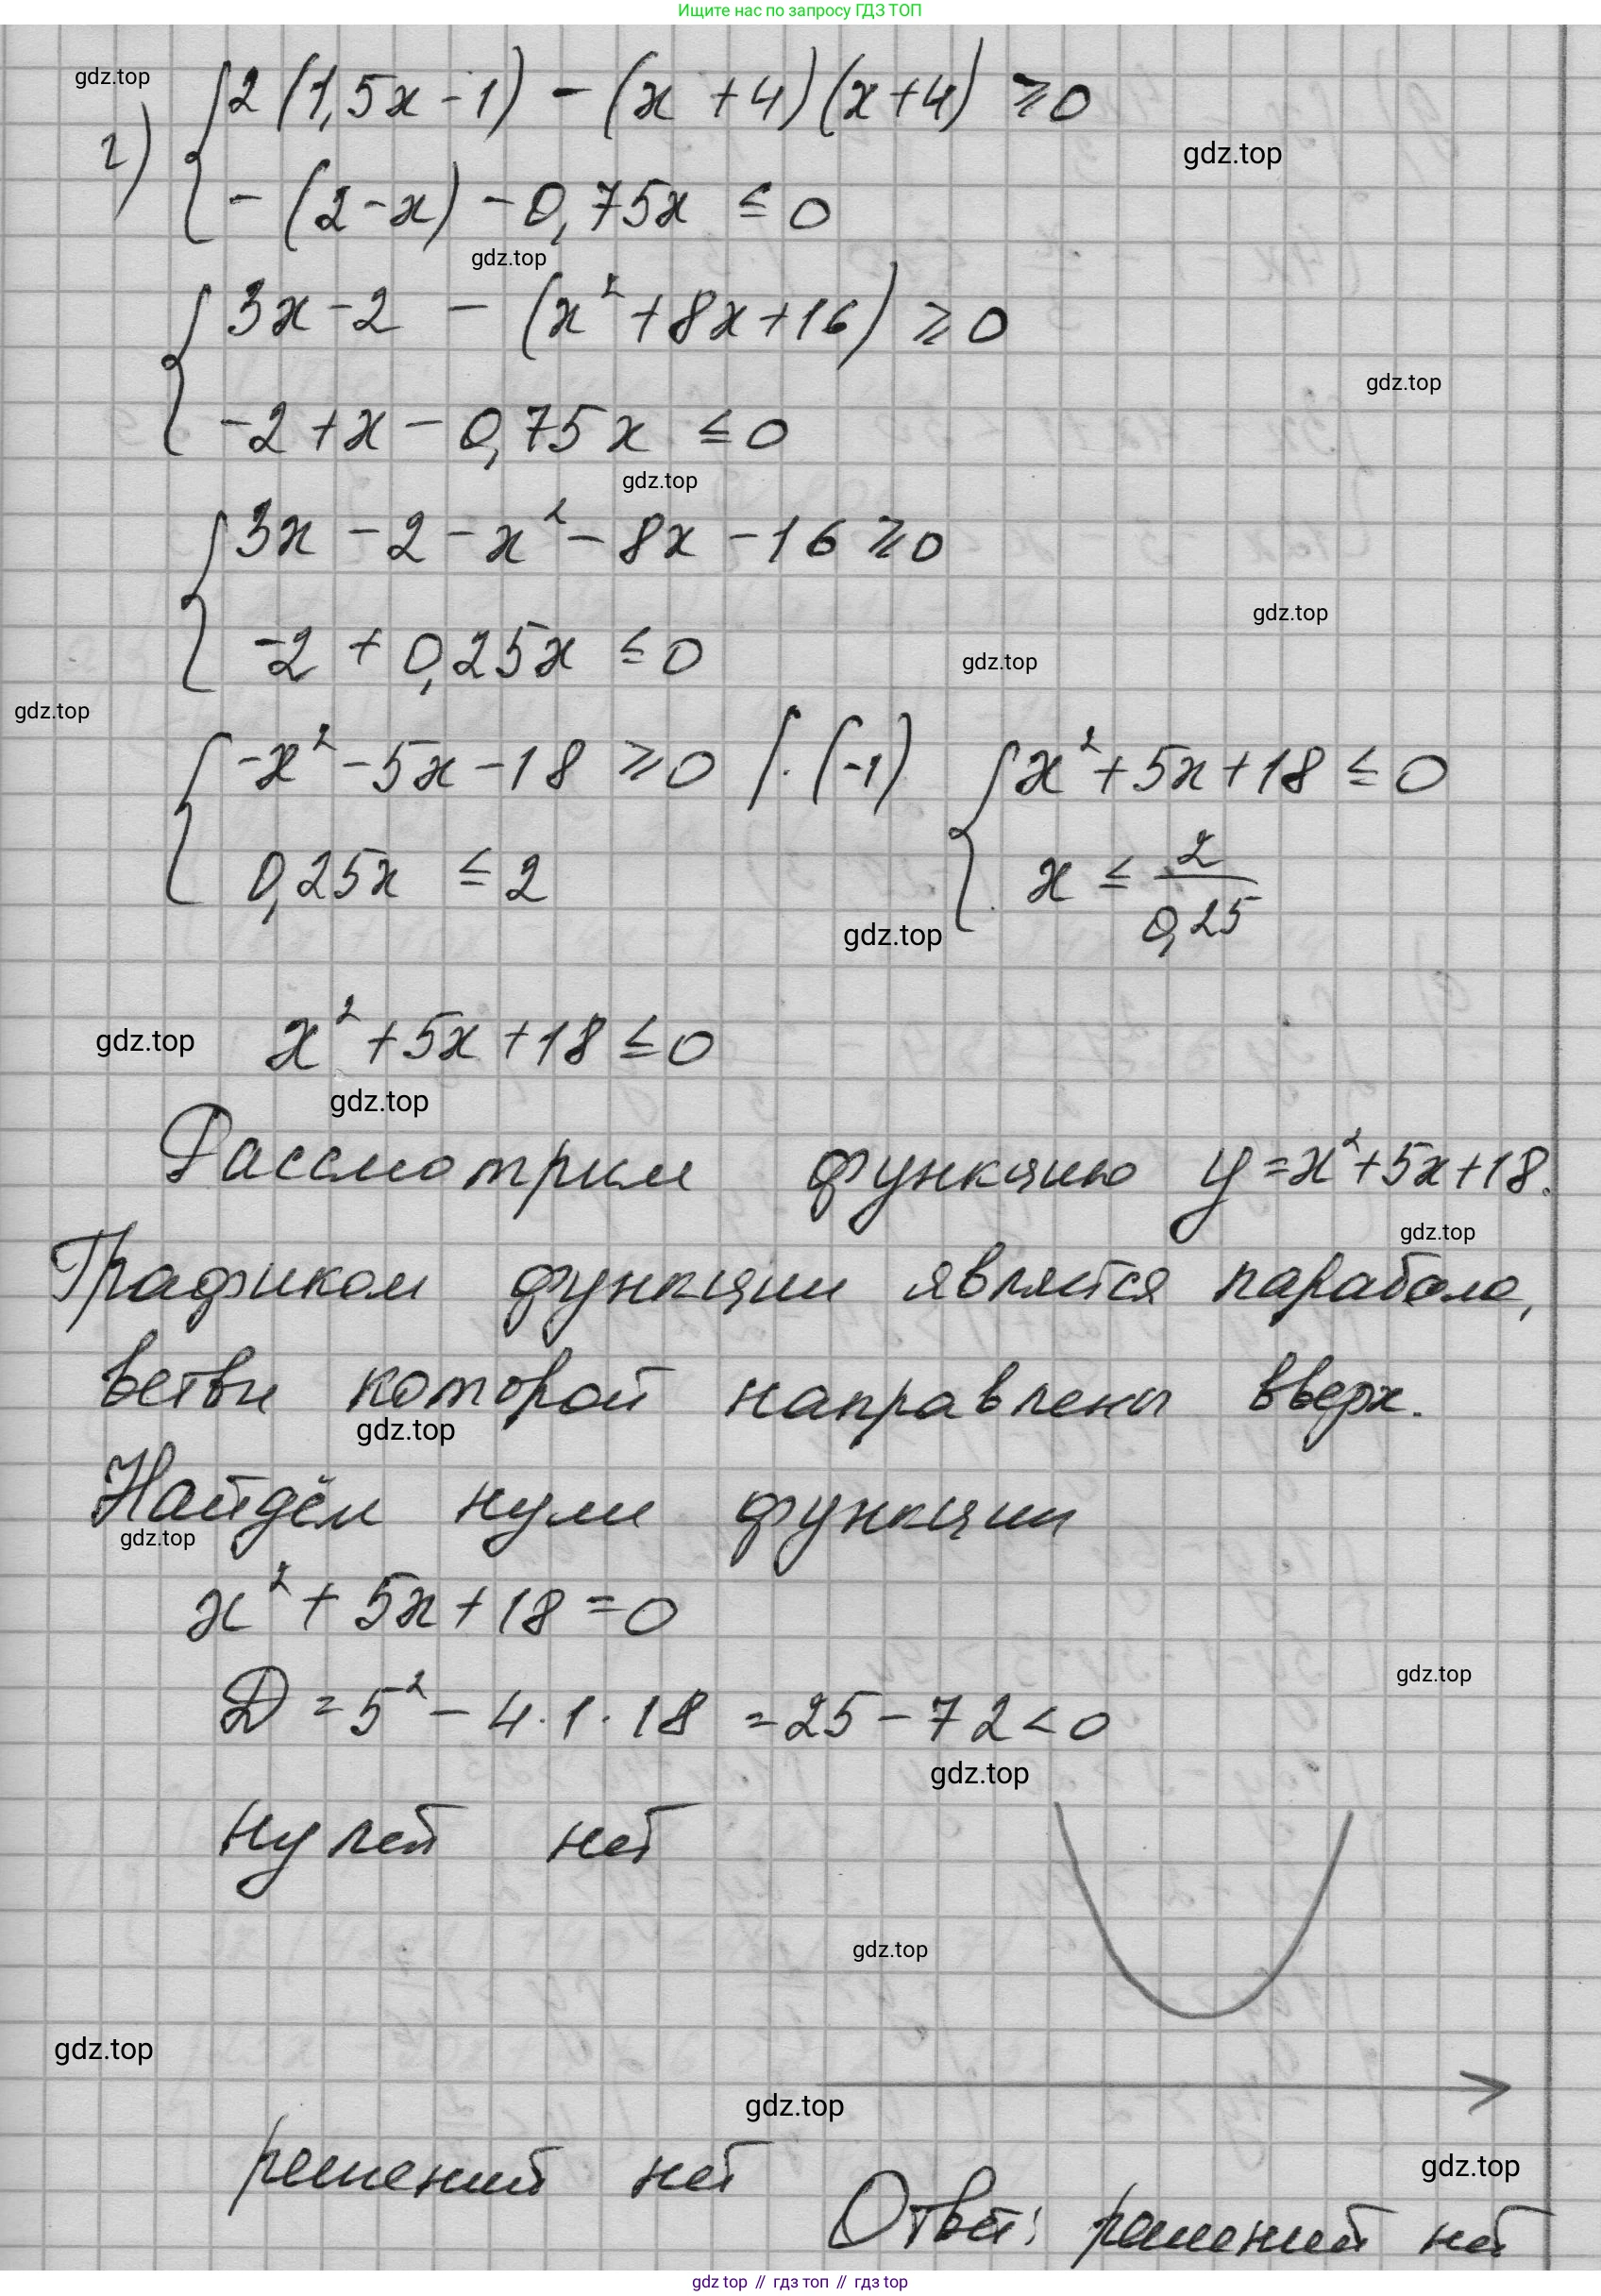 Ищите нас по запросу ГДЗ ТОП
gdz.top
г) { 2(1,5x-1) - (x+4)(x+4) ≥ 0
gdz.top
-(2-x) - 0,75x ≤ 0
gdz.top
{ 3x-2 - (x²+8x+16) ≥ 0
gdz.top
-2+x-0,75x ≤ 0
gdz.top
{ 3x-2-x²-8x-16 ≥ 0
gdz.top
-2+0,25x ≤ 0
gdz.top
gdz.top
{ -x²-5x-18 ≥ 0 | · (-1) { x²+5x+18 ≤ 0
0,25x ≤ 2 x ≤ 2/0,25
gdz.top
gdz.top x²+5x+18 ≤ 0
gdz.top
Рассмотрим функцию y=x²+5x+18.
gdz.top
Графиком функции является парабола,
ветви которой направлены вверх.
gdz.top
Найдём нули функции
gdz.top
x²+5x+18=0
gdz.top
D=5²-4·1·18=25-72<0
gdz.top
нулей нет
gdz.top
gdz.top
gdz.top
решений нет
gdz.top
Ответ: решений нет
gdz top // гдз топ // gdz top